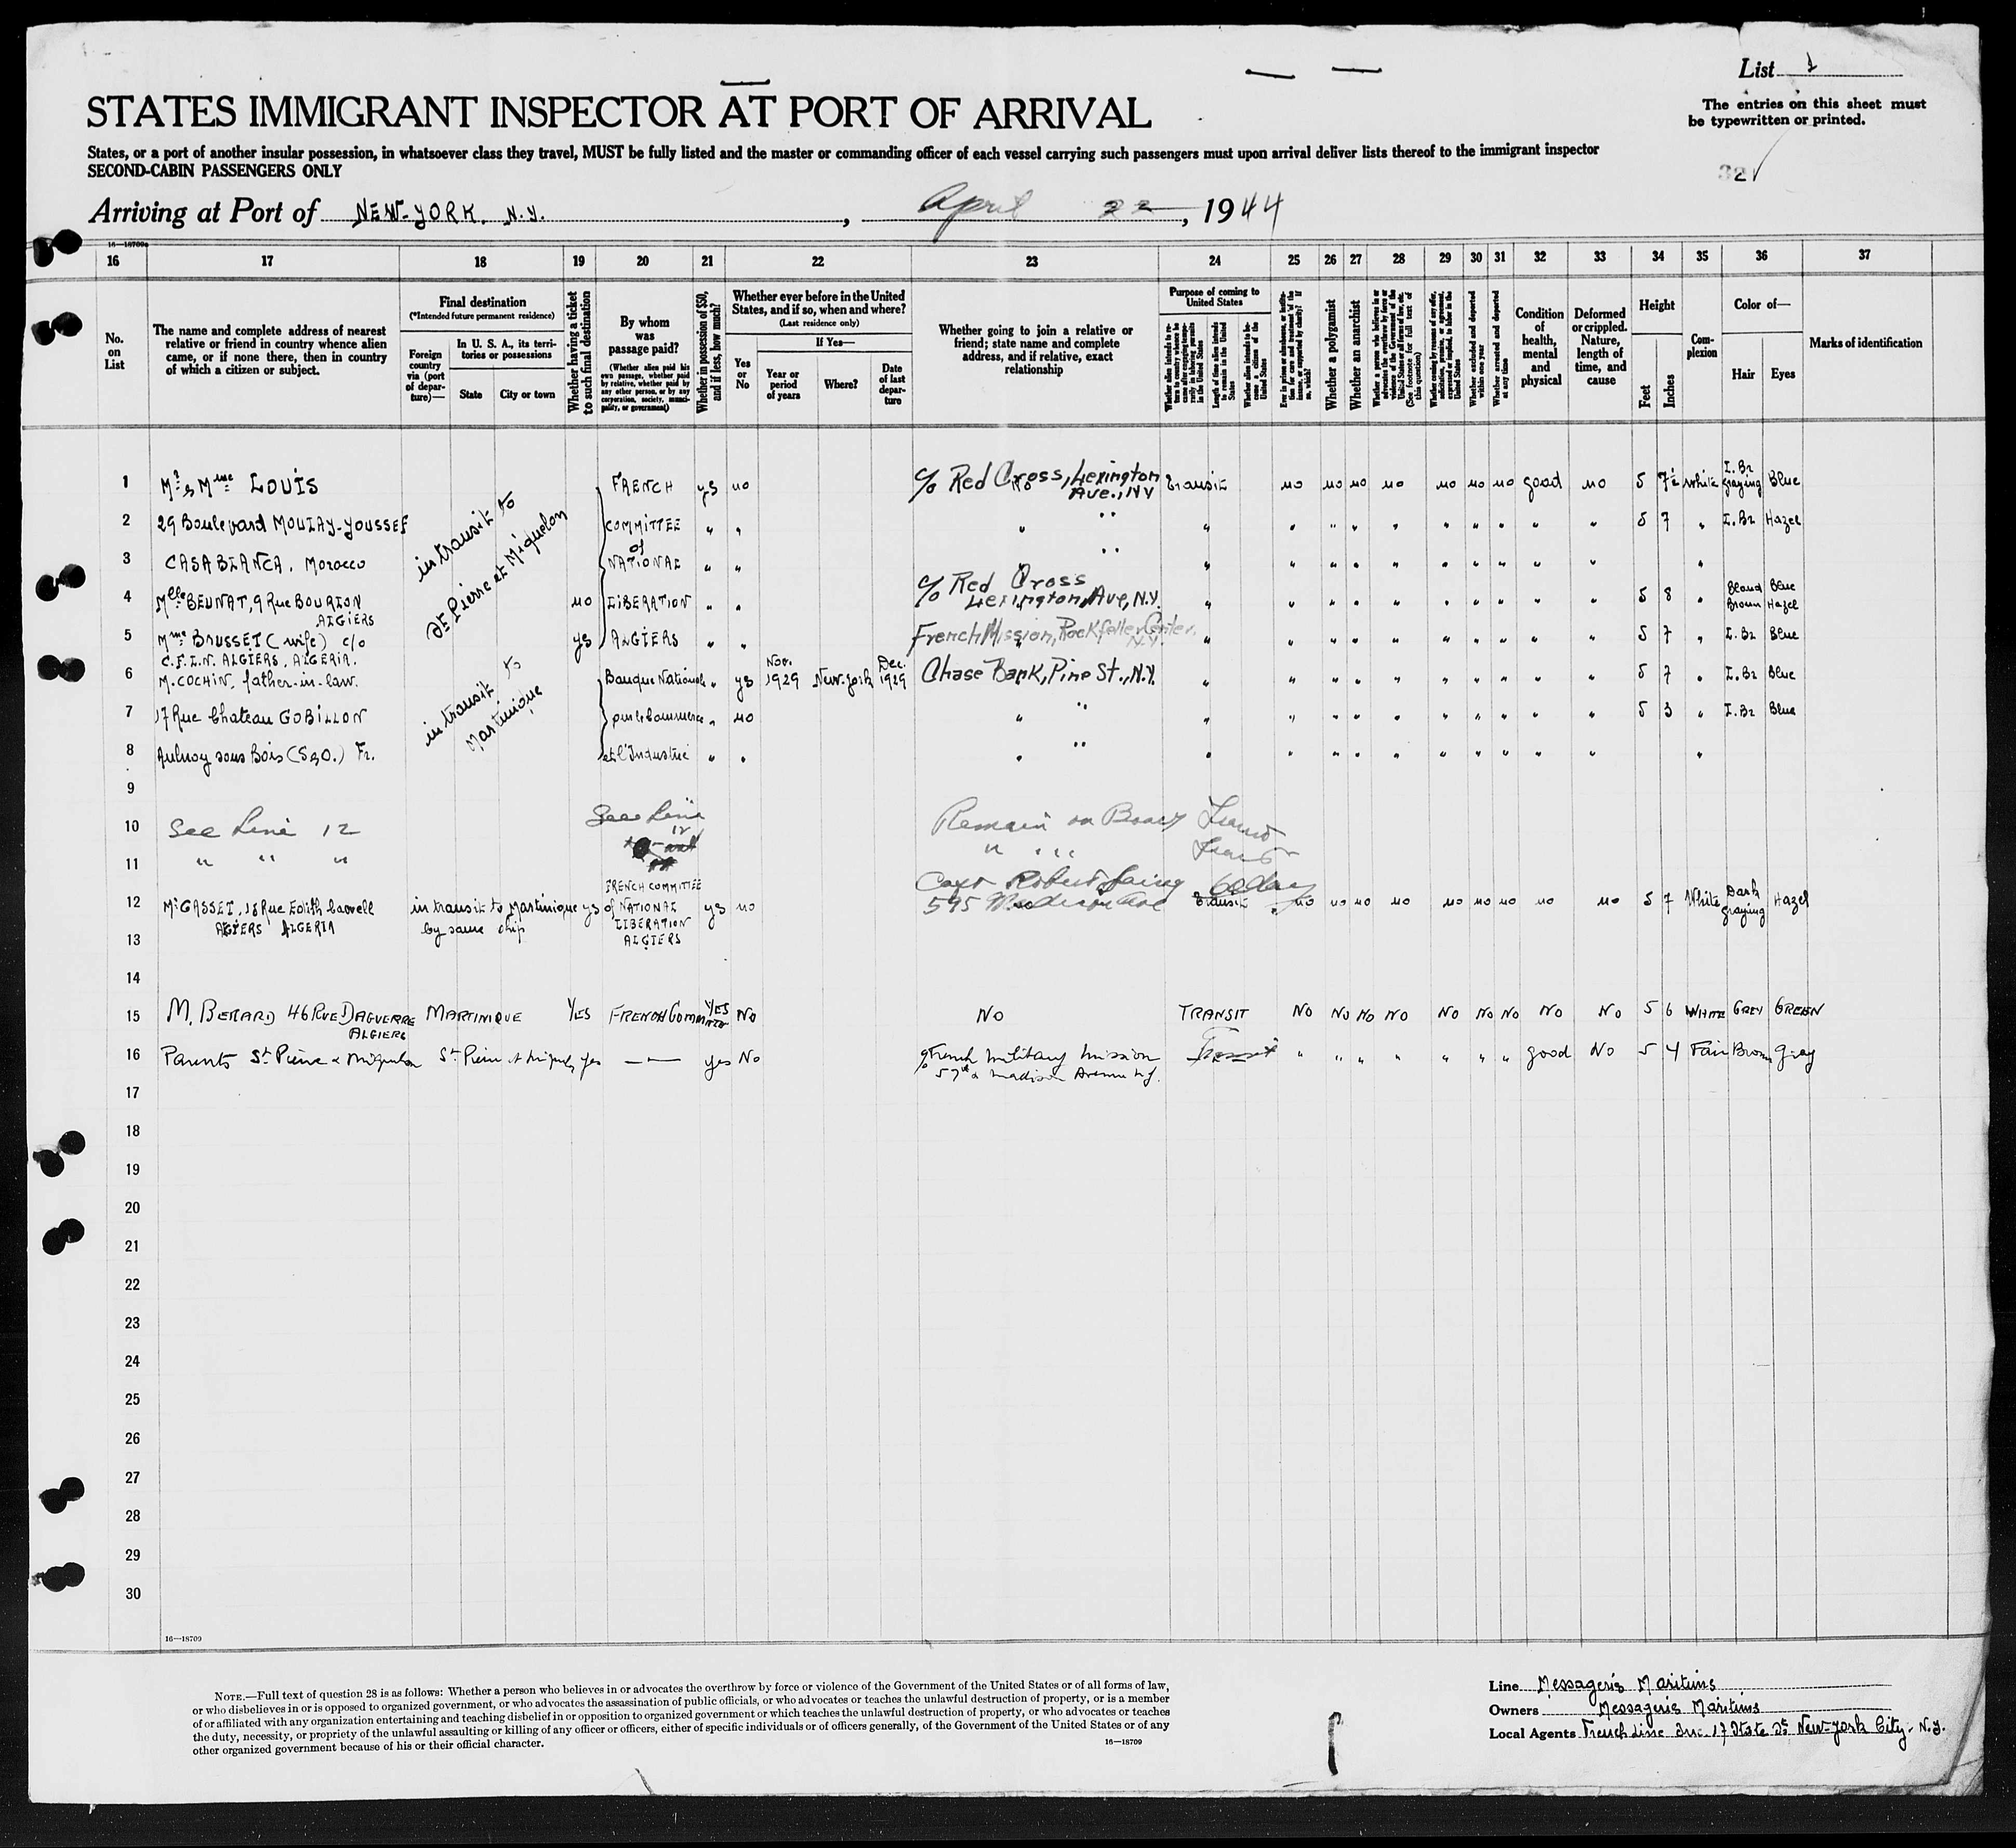 List 1
STATES IMMIGRANT INSPECTOR AT PORT OF ARRIVAL
The entries on this sheet must
be typewritten or printed.
States, or a port of another insular possession, in whatsoever class they travel, MUST be fully listed and the master or commanding officer of each vessel carrying such passengers must upon arrival deliver lists thereof to the immigrant inspector
SECOND-CABIN PASSENGERS ONLY
32
Arriving at Port of NEW-YORK. N.Y., April 22, 1944
16—18709
16 17 18 19 20 21 22 23 24 25 26 27 28 29 30 31 32 33 34 35 36 37
No. on List
The name and complete address of nearest relative or friend in country whence alien came, or if none there, then in country of which a citizen or subject.
Final destination
(*Intended future permanent residence)
Foreign country via (port of departure)—
In U. S. A., its territories or possessions
State
City or town
Whether having a ticket to such final destination
By whom was passage paid?
(Whether alien paid his own passage, whether paid by relative, whether paid by any other person, or by any corporation, society, municipality, or government)
Whether in possession of $50, and if less, how much?
Whether ever before in the United States, and if so, when and where?
(Last residence only)
Yes or No
If Yes—
Year or period of years
Where?
Date of last departure
Whether going to join a relative or friend; state name and complete address, and if relative, exact relationship
Purpose of coming to United States
Length of time alien intends to remain in the United States
Whether alien intends to become a citizen of the United States
Whether a polygamist
Whether an anarchist
(See footnote for full text of this question)
Whether excluded and deported within one year
Whether arrested and deported at any time
Condition of health, mental and physical
Deformed or crippled. Nature, length of time, and cause
Height
Feet
Inches
Complexion
Color of—
Hair
Eyes
Marks of identification
1 Mr & Mme LOUIS FRENCH yes no c/o Red Cross, Lexington Ave., NY transit no no no no no no no good no 5 7½ white L.Br graying Blue
2 29 Boulevard MOULAY-YOUSSEF COMMITTEE " " " " " " " " " " " " " " 5 7 " L.Br Hazel
in transit to St Pierre et Miquelon
of
3 CASABLANCA. Morocco NATIONAL " " " " " " " " " " " " " "
4 Melle BEUNAT, 9 Rue BOURLON ALGIERS no LIBERATION " " c/o Red Cross Lexington, Ave, N.Y. " " " " " " " " " " 5 8 " Blond Brown Blue Hazel
5 Mme BOUSSET (wife) c/o yes ALGIERS " " French Mission, Rockfeller Center, N.Y. " " " " " " " " " " 5 7 " L.Br Blue
C.F.L.N. ALGIERS, ALGERIA.
6 M. COCHIN, father-in-law. Banque Nationale " yes Nov. 1929 New-York Dec. 1929 Chase Bank, Pine St., N.Y. " " " " " " " " " " 5 7 " L.Br Blue
in transit to Martinique
7 17 Rue Chateau GOBILLON pour le Commerce " no " " " " " " " " " " " " 5 3 " L.Br Blue
8 Aulnoy sous Bois (S&O.) Fr. et l'Industrie " " " " " " " " " " " " " "
9
10 See Line 12 See Line 12 Remain on Board Transit
11 " " " " " " Transit
FRENCH COMMITTEE
12 Mr GASSET, 18 Rue Edith Cavell in transit to Martinique yes of NATIONAL yes no Capt Robert 595 Madison Ave 60 days transit no no no no no no no no no 5 7 White Dark graying Hazel
ALGIERS ALGERIA by same ship LIBERATION
13 ALGIERS
14
15 M. BERARD 46 RUE DAGUERRE ALGIERS MARTINIQUE YES FRENCH COMMITTEE YES NO NO TRANSIT NO NO NO NO NO NO NO NO NO 5 6 WHITE GREY GREEN
16 Parents St Pierre & Miquelon St Pierre et Miquelon yes — yes No c/o French Military Mission Transit " " " " " " " good No 5 4 Fair Brown Gray
57th & Madison Avenue N.Y.
17
18
19
20
21
22
23
24
25
26
27
28
29
30
16—18709
NOTE.—Full text of question 28 is as follows: Whether a person who believes in or advocates the overthrow by force or violence of the Government of the United States or of all forms of law,
or who disbelieves in or is opposed to organized government, or who advocates the assassination of public officials, or who advocates or teaches the unlawful destruction of property, or is a member
of or affiliated with any organization entertaining and teaching disbelief in or opposition to organized government or which teaches the unlawful destruction of property, or who advocates or teaches
the duty, necessity, or propriety of the unlawful assaulting or killing of any officer or officers, either of specific individuals or of officers generally, of the Government of the United States or of any
other organized government because of his or their official character.
16—18709
Line Messageries Maritimes
Owners Messageries Maritimes
Local Agents French Line Inc. 17 State St New-York City. N.Y.